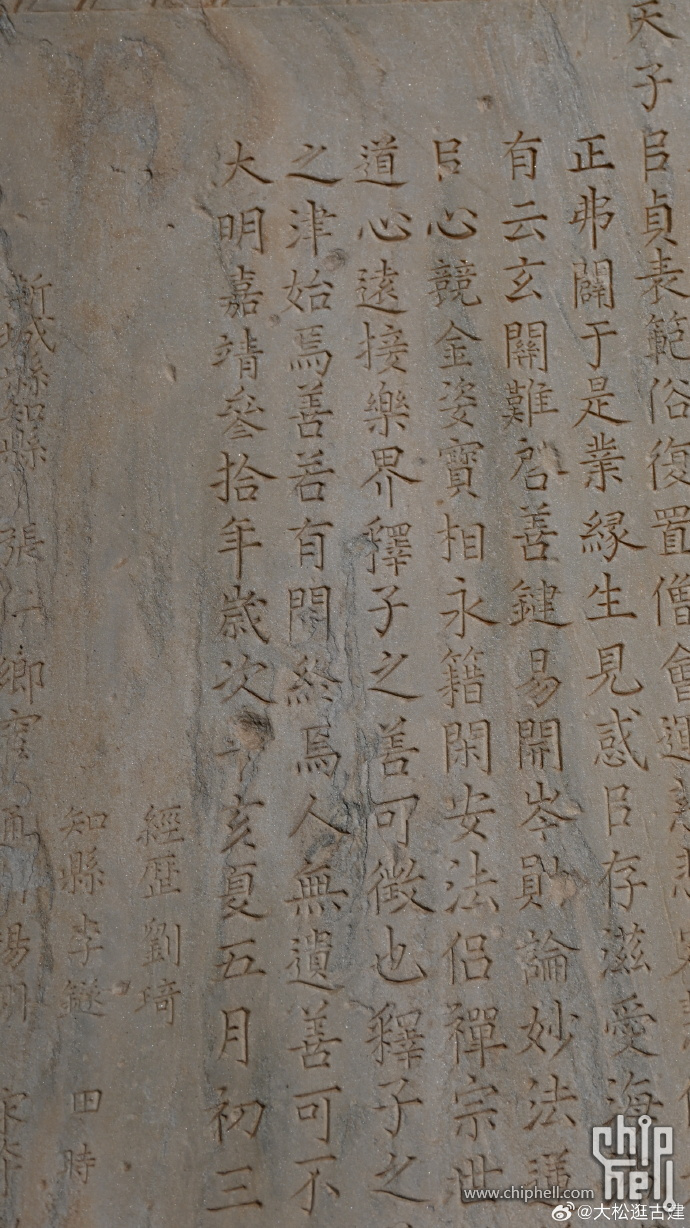 天子臣貞表範俗復置僧會
正弗闢于是業緣生見惑㠯存滋愛海
有云玄關難啓善鍵易開岑則論妙法
㠯心競金姿寶相永籍閑安法侶禪宗世
道心遠接樂界釋子之善可徵也釋子之
之津始焉善善有問終焉人無遺善可不
大明嘉靖參拾年歲次辛亥夏五月初三
經歷劉琦
知縣李鐩 田時
新城縣知縣張仁
chip
hell
www.chiphell.com
@大松逛古建